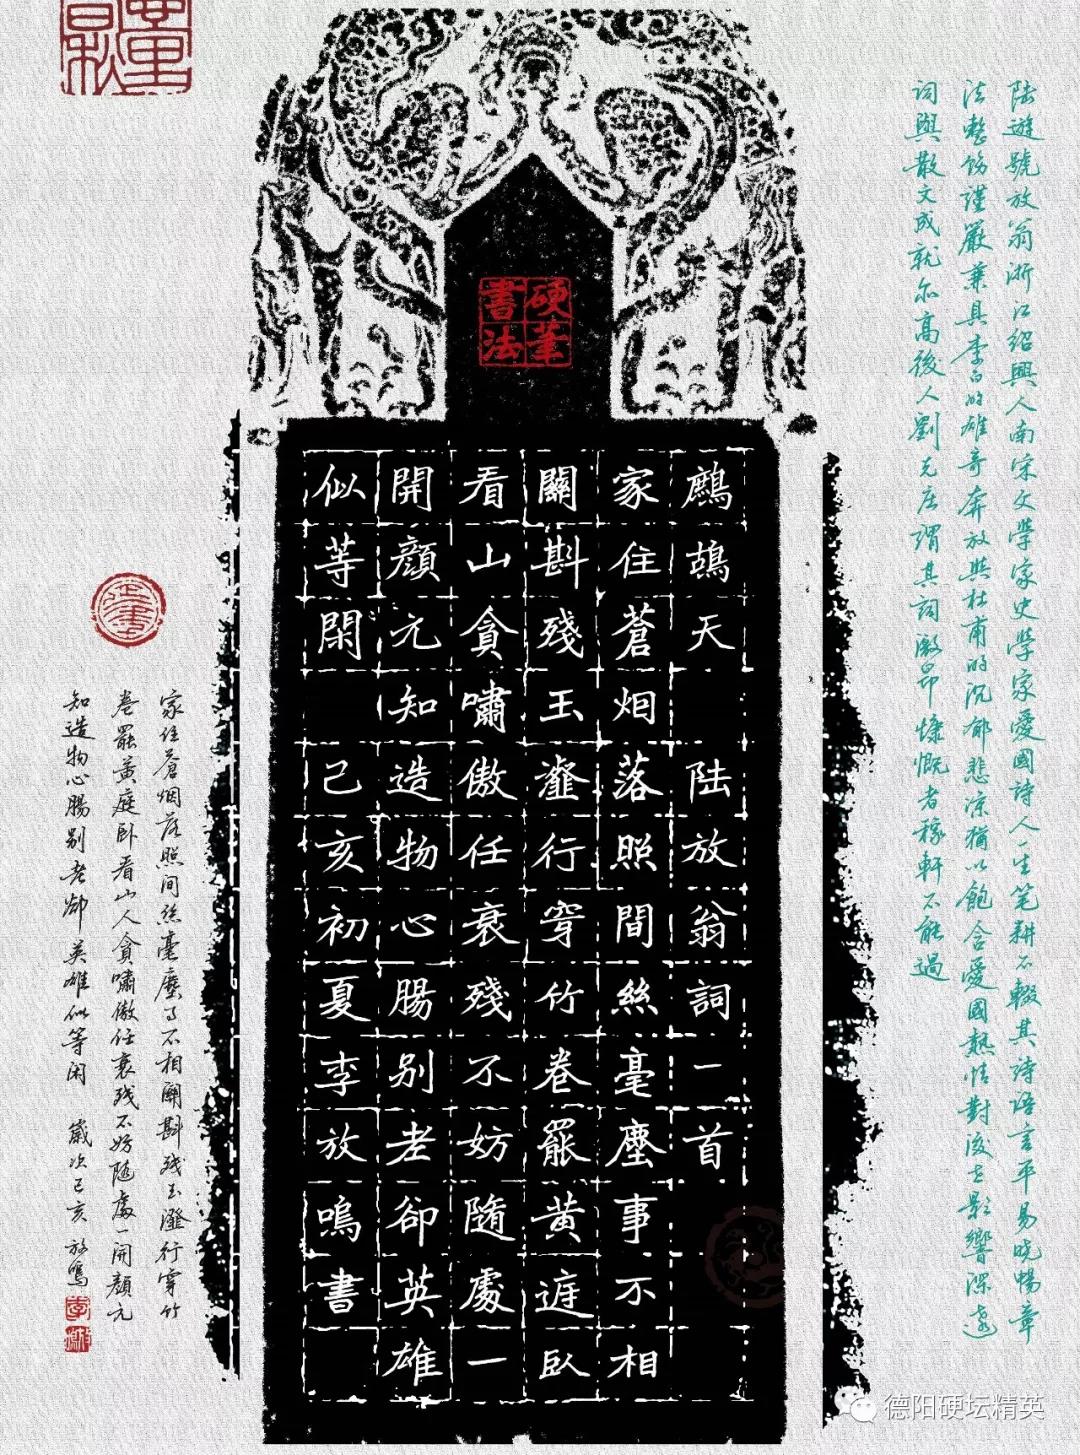 硬筆
書法
鷓鴣天 陆放翁詞一首
家住蒼烟落照間絲毫塵事不相
關斟殘玉瀣行穿竹卷罷黃庭臥
看山貪嘯傲任衰殘不妨隨處一
開顔元知造物心腸别老卻英雄
似等閑 己亥初夏李放鳴書
陆遊號放翁浙江紹興人南宋文學家史學家愛國詩人一生笔耕不輟其詩语言平易晓暢章
法整饬謹嚴兼具李白的雄奇奔放與杜甫的沉郁悲凉猶以飽含愛國熱情對後世影響深遠
词與散文成就亦高後人劉克庄謂其詞激昂慷慨者稼軒不能過
家住蒼烟落照间丝毫塵事不相關斟残玉瀣行穿竹
卷罷黄庭卧看山人貪嘯傲任衰残不妨随處一開顔元
知造物心腸别老卻英雄似等闲 歲次己亥 放鳴
德阳硬坛精英